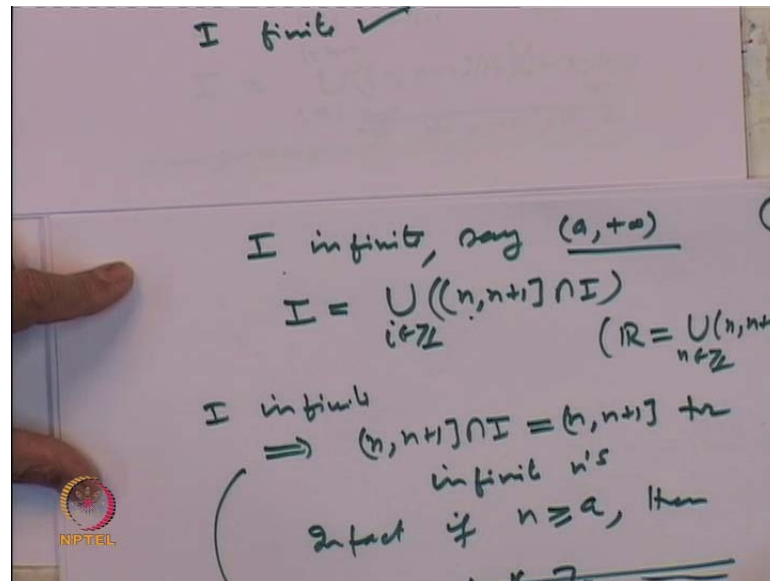 I finite ✓
I infinite, say (a, +∞)
I = ∪ ((n, n+1] ∩ I)
i∈ℤ
(ℝ = ∪ (n, n+
n∈ℤ
I infinite
⟹ (n, n+1] ∩ I = (n, n+1] for
infinit n's
Infact if n ≥ a, then
NPTEL